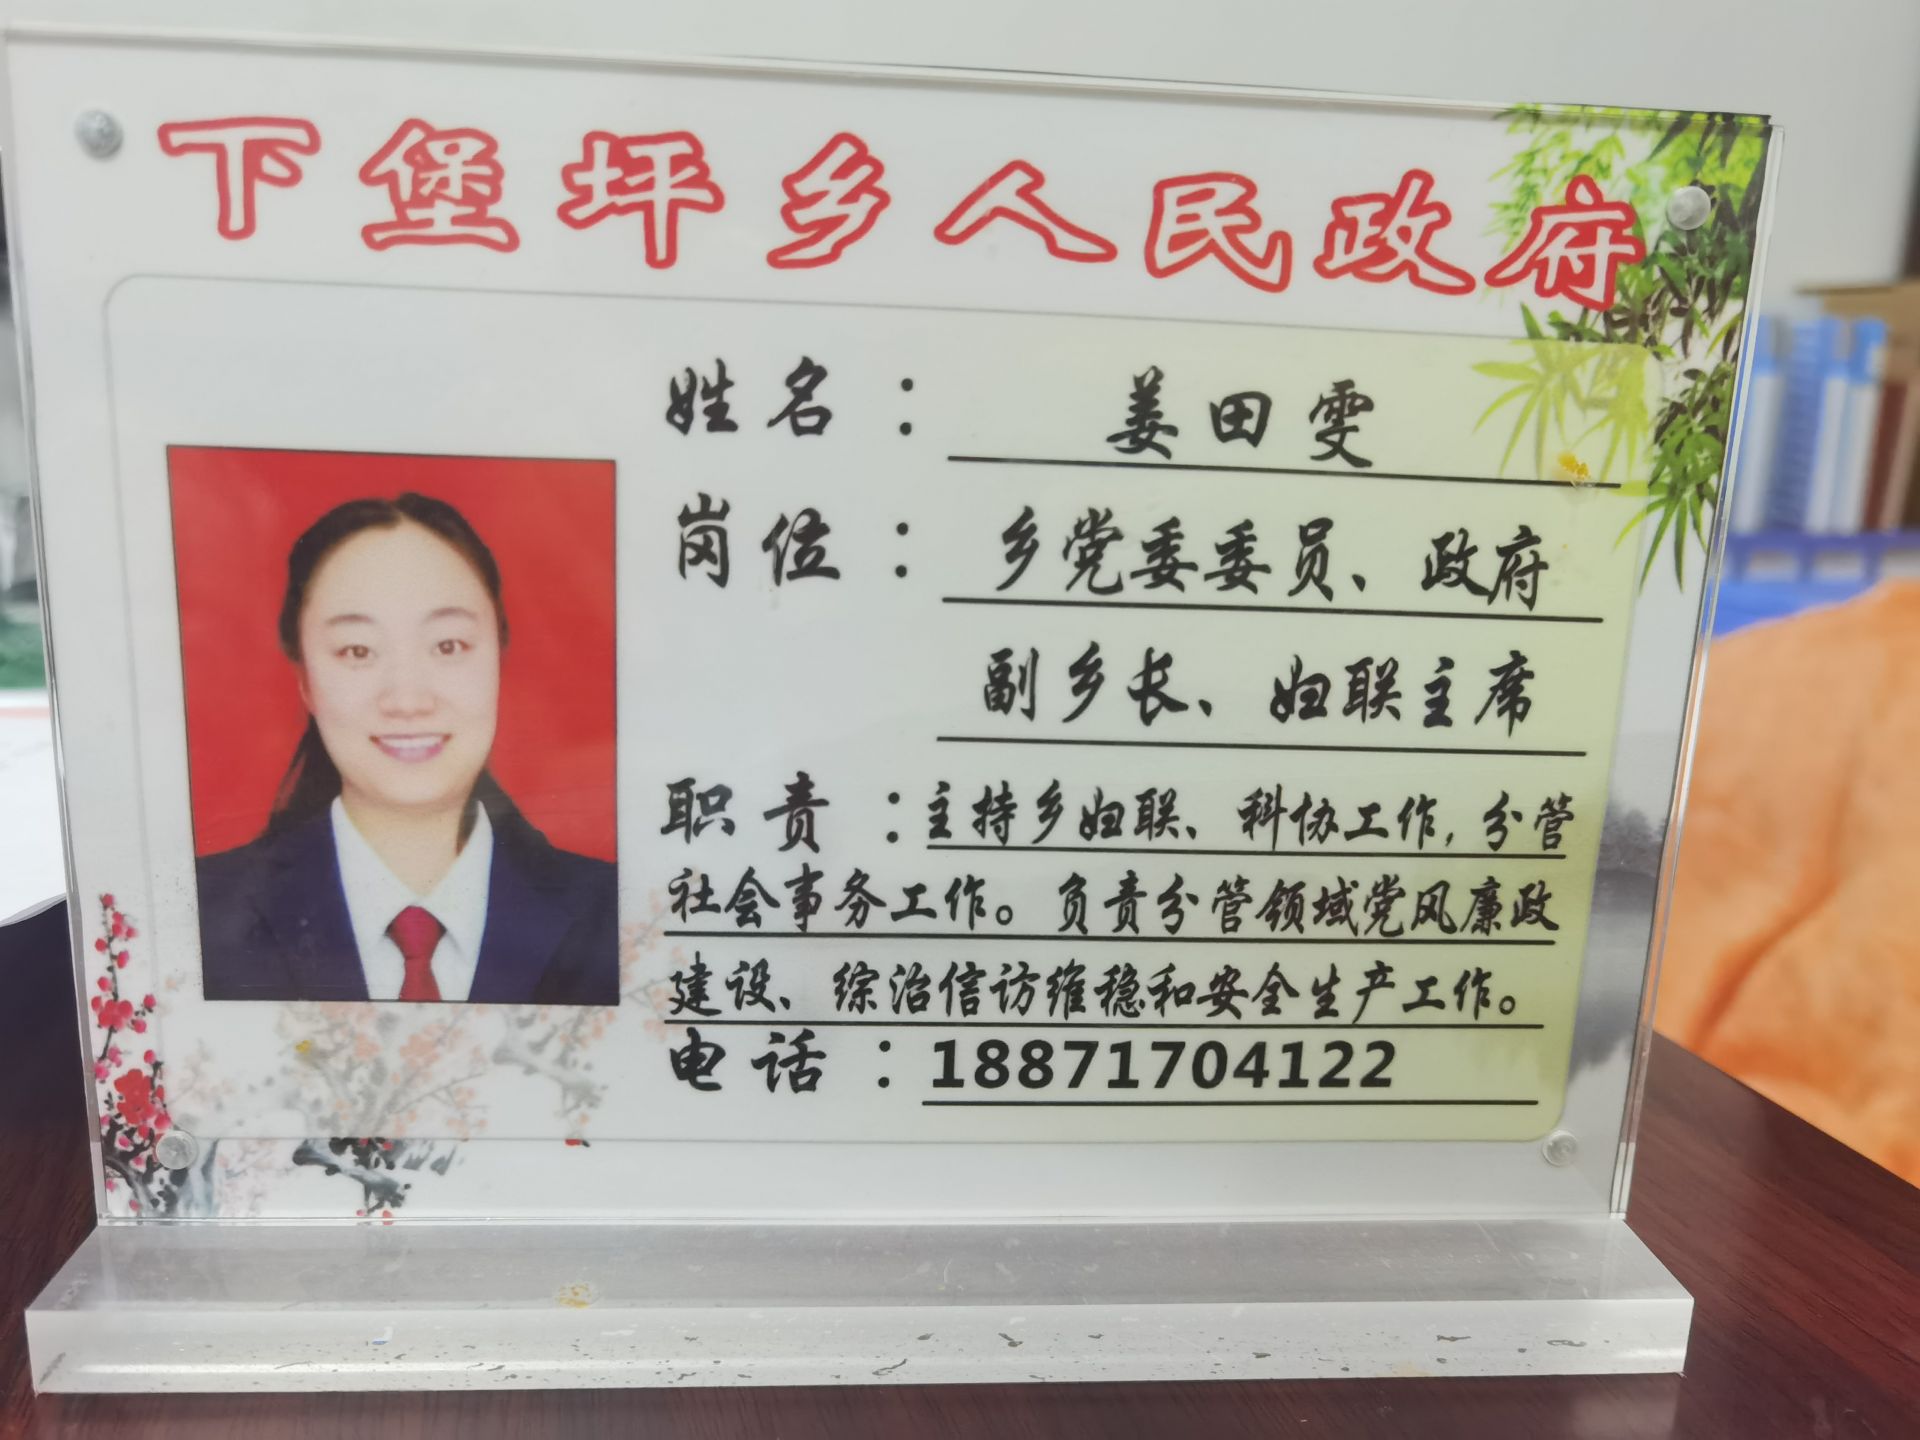 下堡坪乡人民政府
姓名：姜田雯
岗位：乡党委委员、政府
副乡长、妇联主席
职责：主持乡妇联、科协工作,分管
社会事务工作。负责分管领域党风廉政
建设、综治信访维稳和安全生产工作。
电话：18871704122